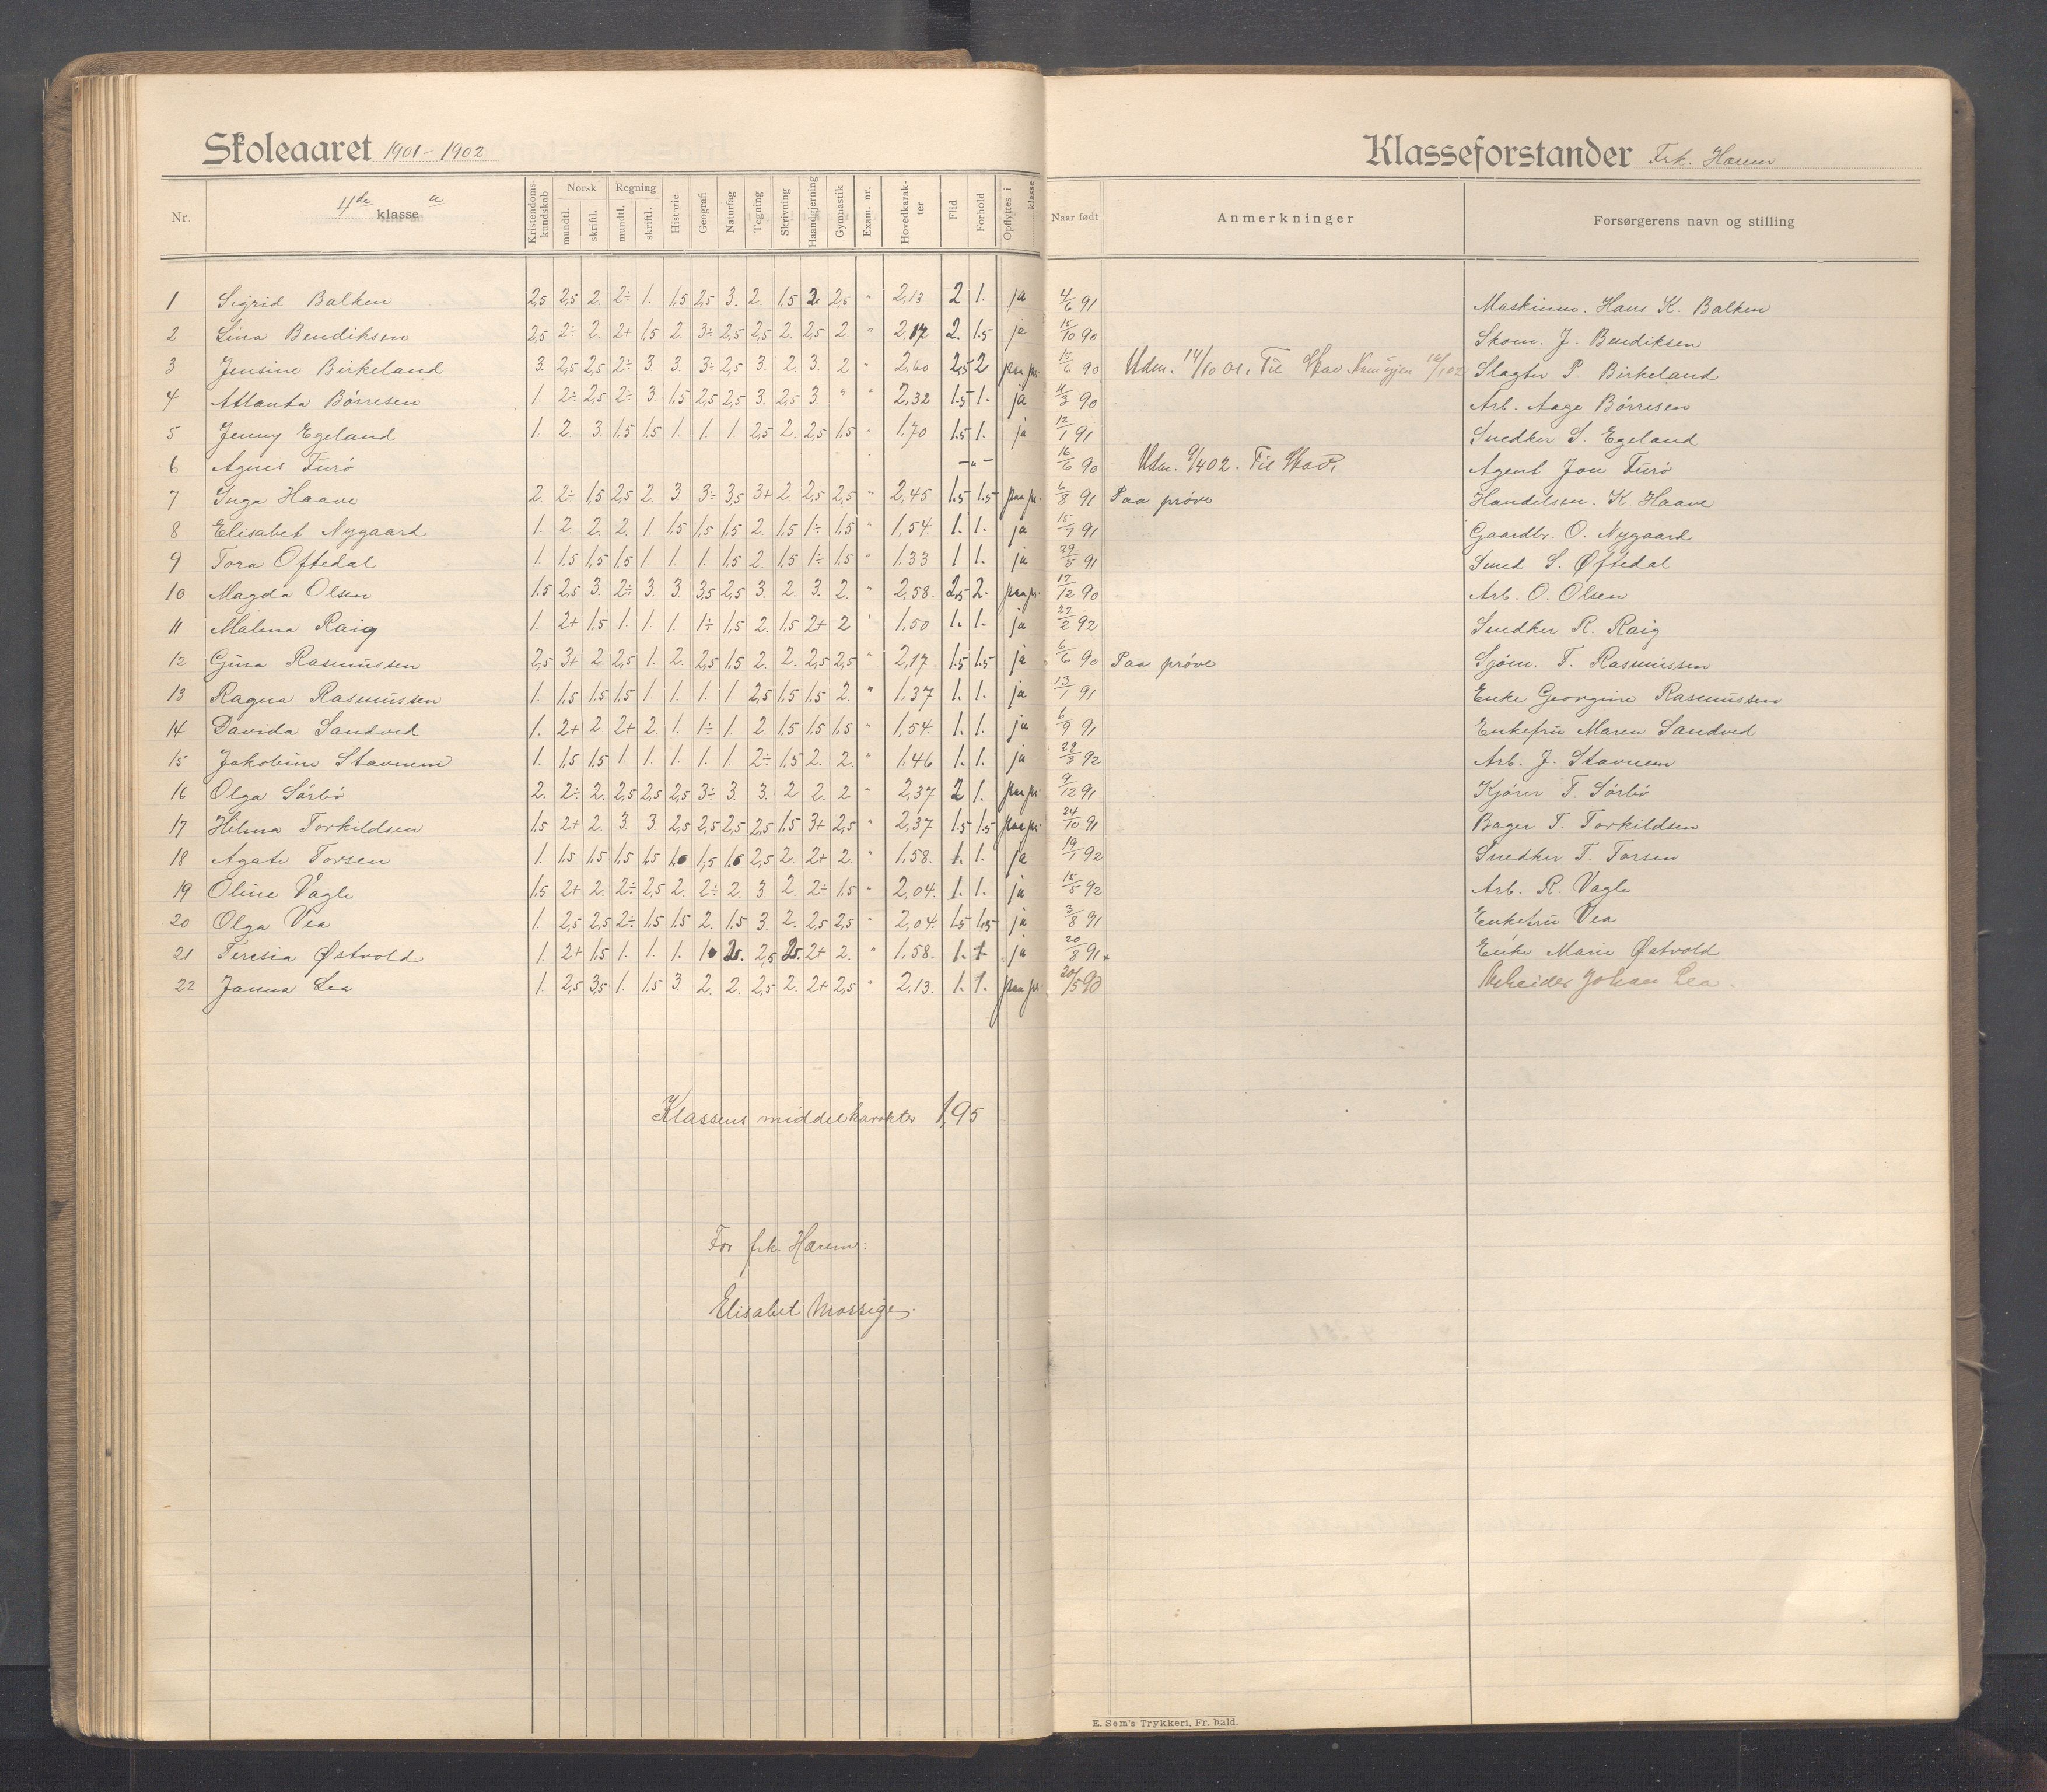 Skoleaaret 1901-1902
Klasseforstander Frk. Harem
Nr. 4de klasse a Kristendomskundskab Norsk mundtl. skriftl. Regning mundtl. skriftl. Historie Geografi Naturfag Tegning Skrivning Haandgjerning Gymnastik Exam. nr. Hovedkarakter Flid Forhold Opflyttes i klasse Naar født Anmerkninger Forsørgerens navn og stilling
1 Sigrid Balken 2,5 2,5 2. 2÷ 1. 1,5 2,5 3. 2. 1,5 2 2,5 " 2,13 2 1. ja 4/6 91 Maskinm. Hans K. Balken
2 Lina Bendiksen 2,5 2÷ 2. 2+ 1,5 2. 3÷ 2,5 2,5 2. 2,5 2 " 2,17 2. 1.5 ja 15/10 90 Skom. J. Bendiksen
3 Jensine Birkeland 3. 2,5 2,5 2÷ 3. 3. 3÷ 2,5 3. 2. 3. 2 " 2,60 2,5 2 paa pr. 15/6 90 Udm. 14/10 01. Til Stav. Slagter P. Birkeland
4 Atlanta Börresen 1. 2÷ 2,5 2÷ 3. 1,5 2,5 2,5 3. 2,5 3. " " 2,32 1.5 1. ja 11/3 90 Arb. Aage Börresen
5 Jenny Egeland 1. 2. 3. 1.5 1,5 1. 1. 1. 2,5 2. 2,5 1.5 " 1.70 1.5 1. ja 12/1 91 Snedker S. Egeland
6 Agnes Furö -"- 16/6 90 Udm. 9/4 02. Til Stav. Agent Jon Furö
7 Inga Haave 2. 2÷ 1,5 2,5 2. 3 3÷ 3,5 3+ 2. 2,5 2,5 " 2,45 1.5 1.5 paa pr. 6/8 91 Paa pröve Handelsm. K. Haave
8 Elisabet Nygaard 1. 2. 2. 2. 1. 1,5 1,5 1,5 2. 1,5 1÷ 1,5 " 1,54. 1. 1. ja 15/7 91 Gaardbr. O. Nygaard
9 Tora Oftedal 1. 1,5 1,5 1,5 1. 1. 1. 1,5 2. 1,5 1÷ 1,5 " 1.33 1 1. ja 29/5 91 Smed S. Øftedal
10 Magda Olsen 1.5 2,5 3. 2÷ 3. 3. 3,5 2,5 3. 2. 3. 2. " 2,58. 2,5 2. paa pr. 17/12 90 Arb. O. Olsen
11 Malena Raig 1. 2+ 1.5 1. 1. 1. 1÷ 1,5 2. 1.5 2+ 2 " 1.50 1. 1. ja 27/2 92 Snedker R. Raig
12 Gina Rasmussen 2,5 3+ 2. 2,5 1. 2. 2,5 1.5 2. 2. 2,5 2,5 " 2,17 1.5 1.5 ja 6/6 90 Paa pröve Sjöm. T. Rasmussen
13 Ragna Rasmussen 1. 1,5 1,5 1,5 1. 1. 1. 1. 2,5 1.5 1.5 2. " 1,37 1. 1. ja 13/1 91 Enke Georgine Rasmussen
14 Davida Sandved 1. 2+ 2. 2+ 2. 1. 1÷ 1. 2. 1.5 1.5 1.5 " 1,54. 1. 1. ja 6/9 91 Enkefru Maren Sandved
15 Jakobine Stavnem 1. 1,5 1,5 1. 1. 1. 1. 1. 2÷ 1.5 2. 2. " 1,46 1. 1. ja 29/3 92 Arb. J. Stavnem
16 Olga Sörbö 2. 2÷ 2. 2,5 2,5 2,5 3÷ 3. 3. 2 2. 2 " 2,37 2 1. paa pr. 9/12 91 Kjörer T. Sörbö
17 Hilma Torkildsen 1.5 2+ 2. 3 3. 2,5 2,5 2,5 2,5 1.5 3+ 2,5 " 2,37 1.5 1.5 paa pr. 24/10 91 Bager T. Torkildsen
18 Agate Torsen 1. 1,5 1,5 1,5 1,5 1. 1,5 1. 2,5 2. 2+ 2. " 1,58. 1. 1. ja 19/1 92 Snedker T. Torsen
19 Oline Vagle 1.5 2+ 2. 2÷ 2,5 2. 2÷ 2. 3. 2. 2÷ 1.5 " 2,04. 1. 1. ja 15/5 92 Arb. R. Vagle
20 Olga Vea 1. 2,5 2,5 2÷ 1.5 1.5 2. 1.5 3. 2. 2,5 2,5 " 2,04. 1.5 1.5 ja 3/8 91 Enkefru Vea
21 Teresia Østvold 1. 2+ 1.5 1. 1. 1. 1. 2. 2,5 2. 2+ 2. " 1,58. 1. 1. ja 20/8 91 Enke Marie Østvold
22 Janna Lea 1. 2,5 3,5 1. 1,5 3. 2. 2. 2,5 2. 2+ 2,5 " 2,13. 1. 1. paa pr. 20/5 90 Arbeider Johan Lea.
Klassens middelkarakter 1,95
For frk. Harem:
Elisabet Mossige.
E. Sem's Trykkeri, Fr. hald.